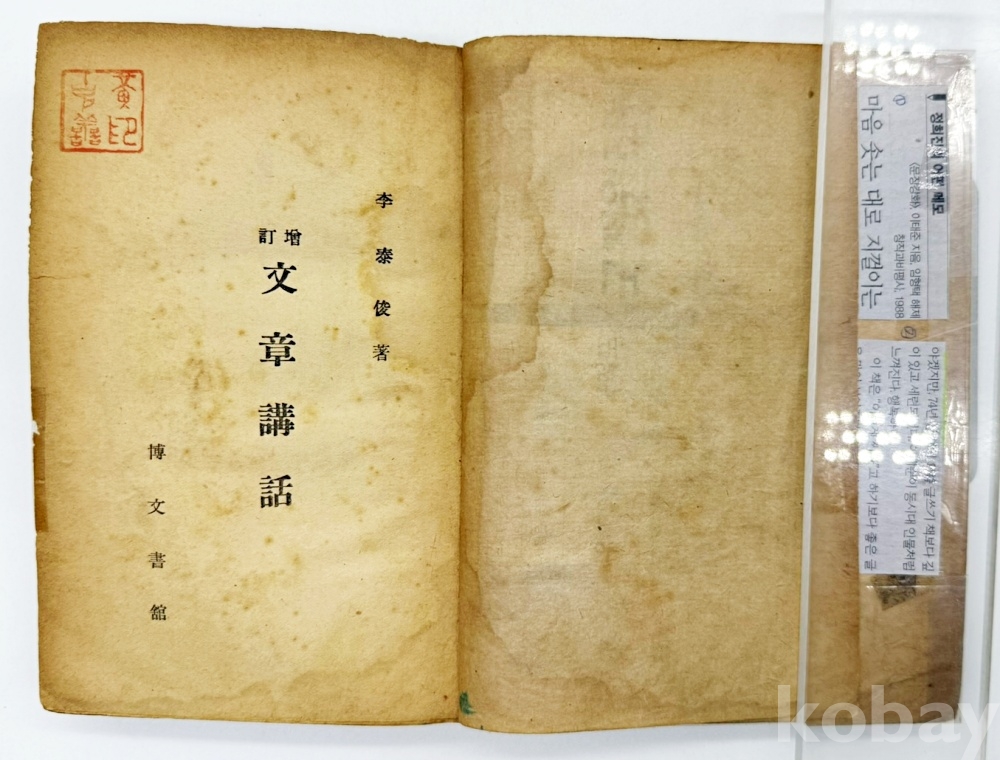 李泰俊著
增訂
文章講話
博文書館
정희진의 어떤 메모
마음 솟는 대로 지껄이는
<문장강화>, 이태준 지음, 임형택 해제
창작과비평사, 1988
이 있고 세련
느껴진다. 행복
이 동시대 인물처럼
글쓰기 책보다 깊
야겠지만, 74년
이 책은
고 하기보다 좋은 글
kobay